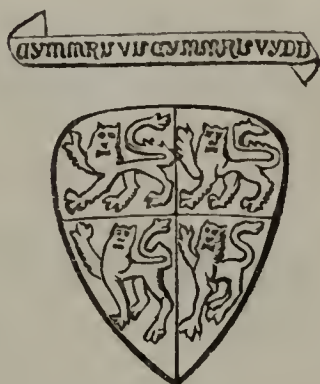 CYMMRU VU CYMMRU VYDD